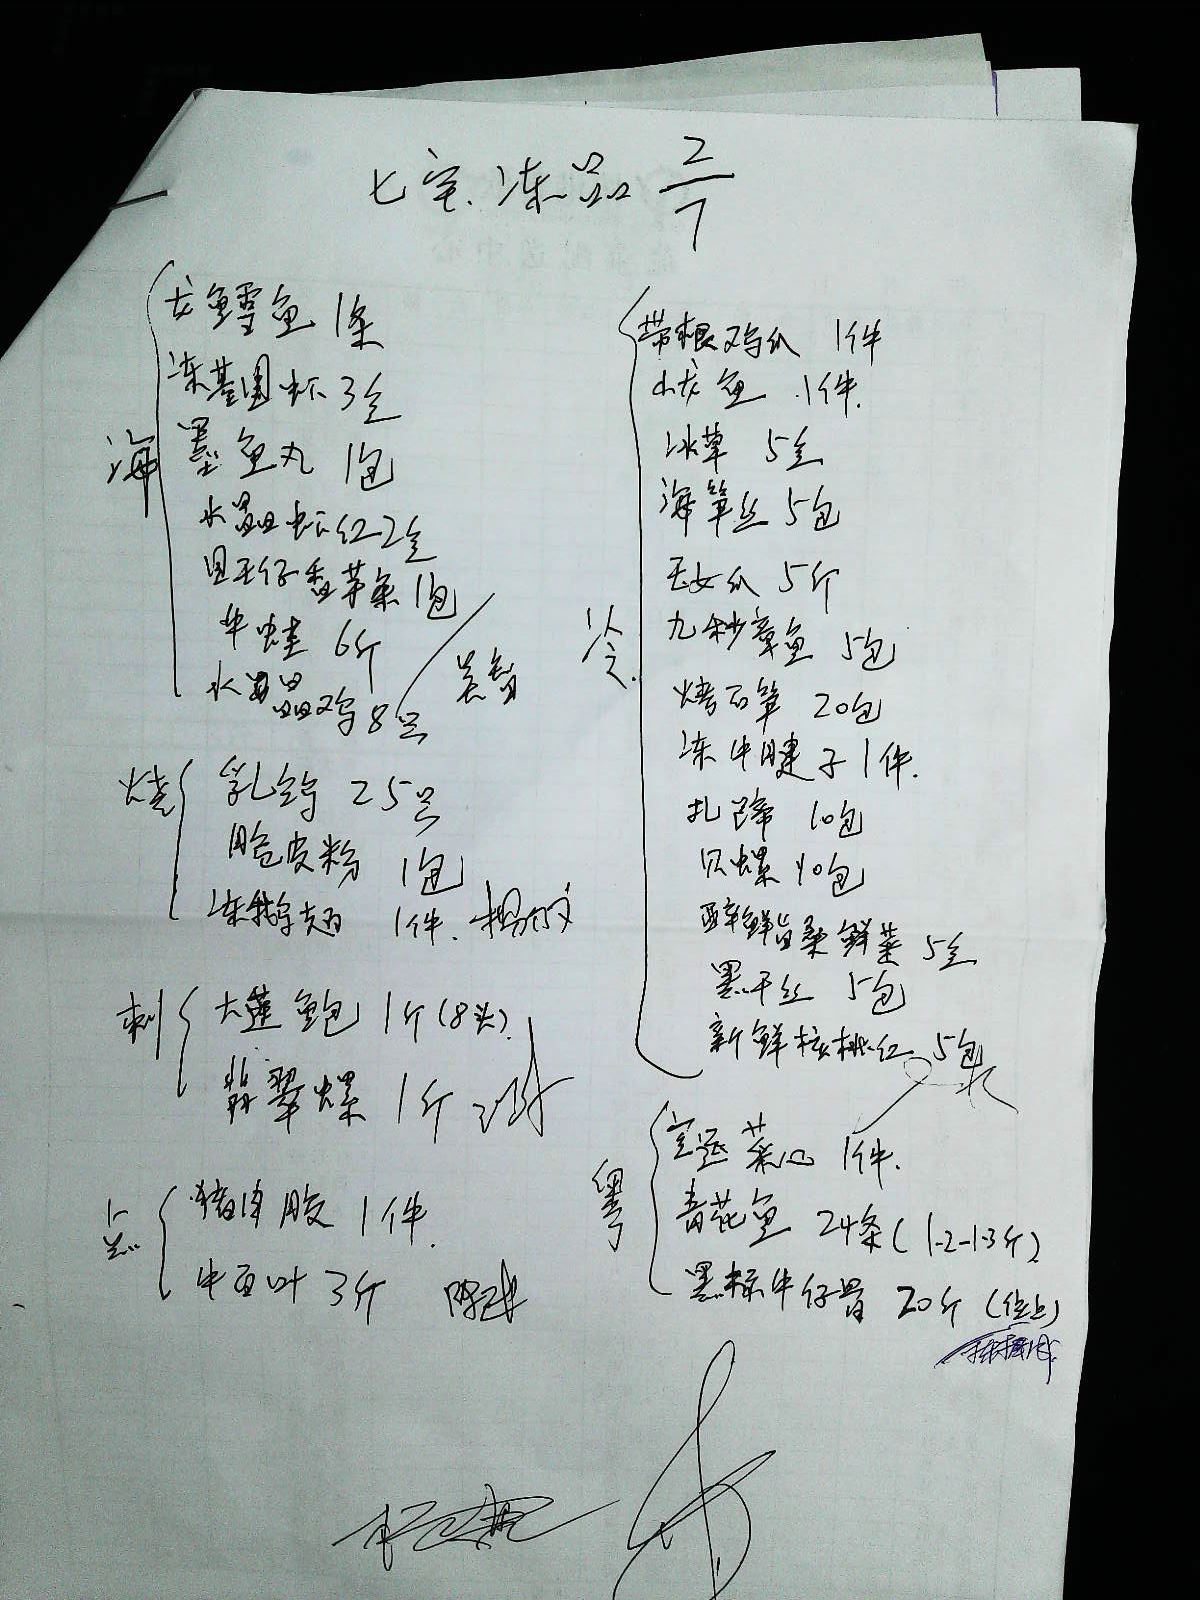 七宝.冻品 2/7
海
龙鳕鱼 1条
冻基围虾 3仝
墨鱼丸 1包
水晶虾红2仝
牛蛙 6斤
水晶鸡 8只
烧
乳鸽 25只
脆皮粉 1包
冻鹅翅 1件.
刺
大莲鲍 1斤(8头)
翡翠螺 1斤
点
猪 1件.
牛百叶 3斤
冷.
带根鸡爪 1件
小龙鱼 1件.
冰草 5仝
海笋丝 5包
玉女瓜 5斤
九秒章鱼 5包
烤石笋 20包
冻牛腱子 1件.
扎蹄 10包
贝螺 10包
醉鲜 鲜菜 5仝
黑干丝 5包
新鲜核桃红 5包
粤
菜心 1件.
青花鱼 24条(1.2-1.3斤)
黑椒牛仔骨 20斤(位上)